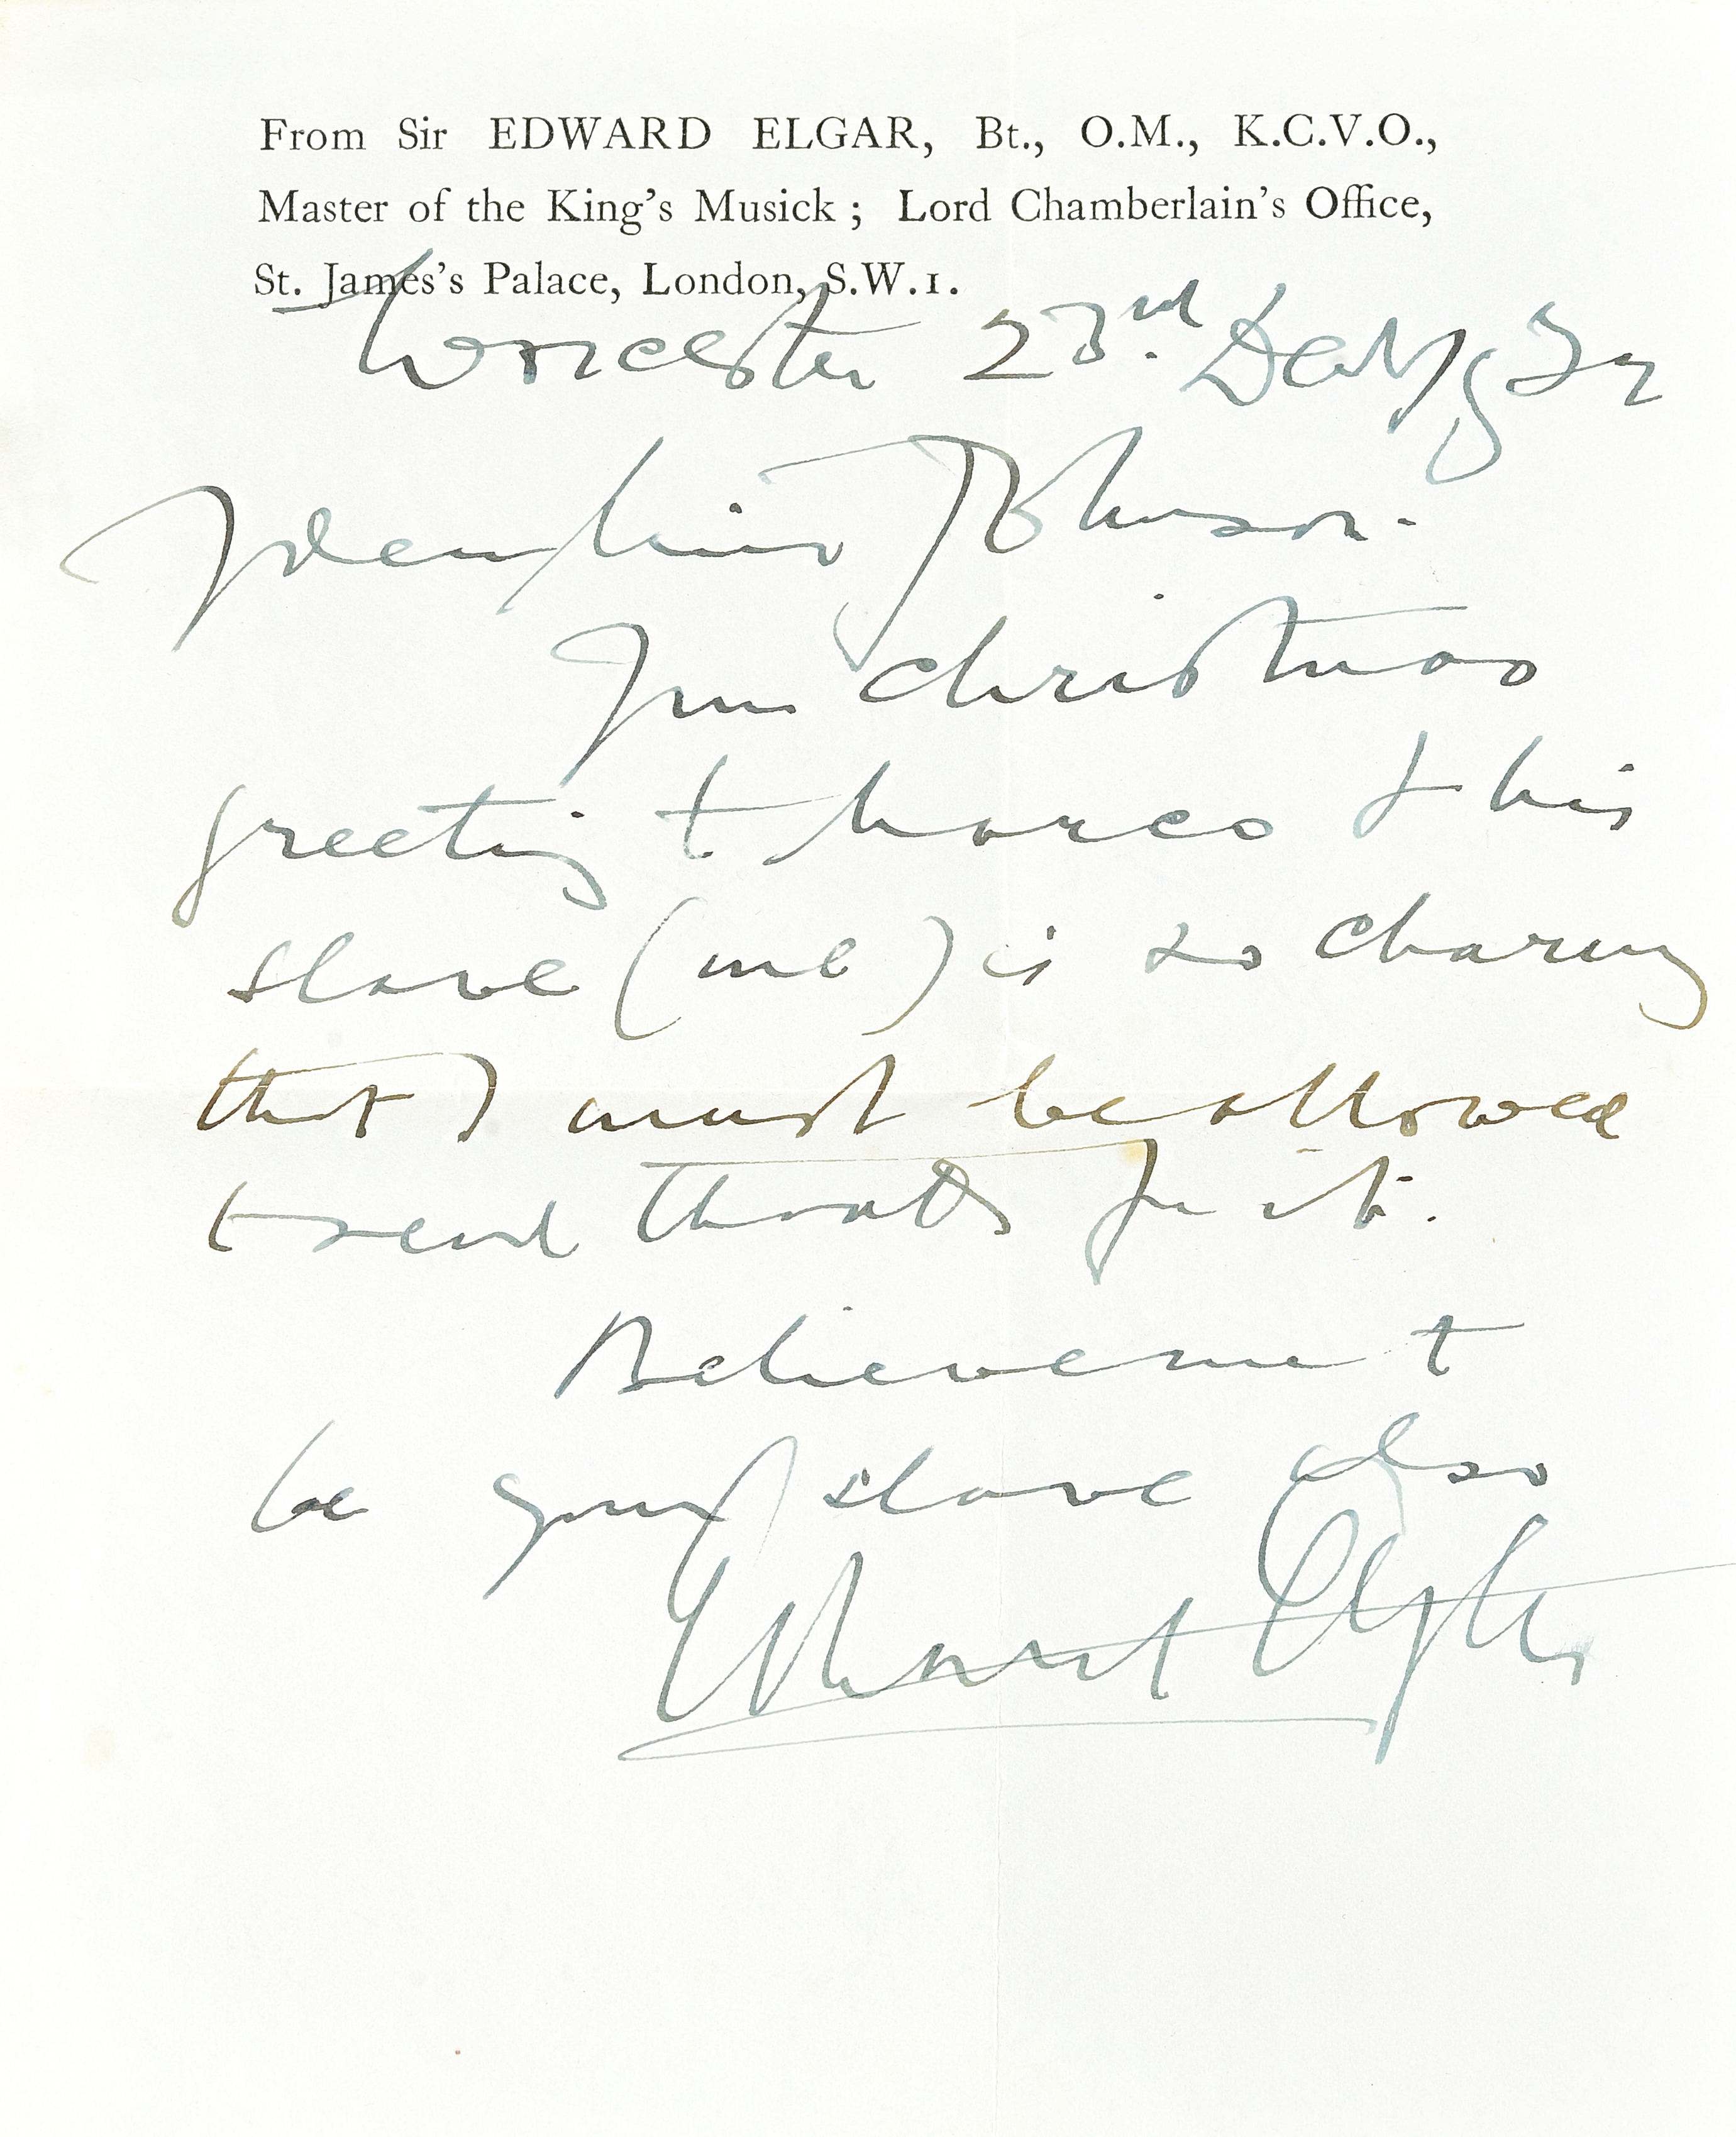 From Sir EDWARD ELGAR, Bt., O.M., K.C.V.O.,
Master of the King's Musick; Lord Chamberlain's Office,
St. James's Palace, London, S.W.1.
Worcester 23rd Dec
Dear Miss Johnson.
Your Christmas
greeting to Marco & his
slave (me) is so charming
that I must be allowed
to send thanks for it.
Believe me to
be your slave also
Edward Elgar